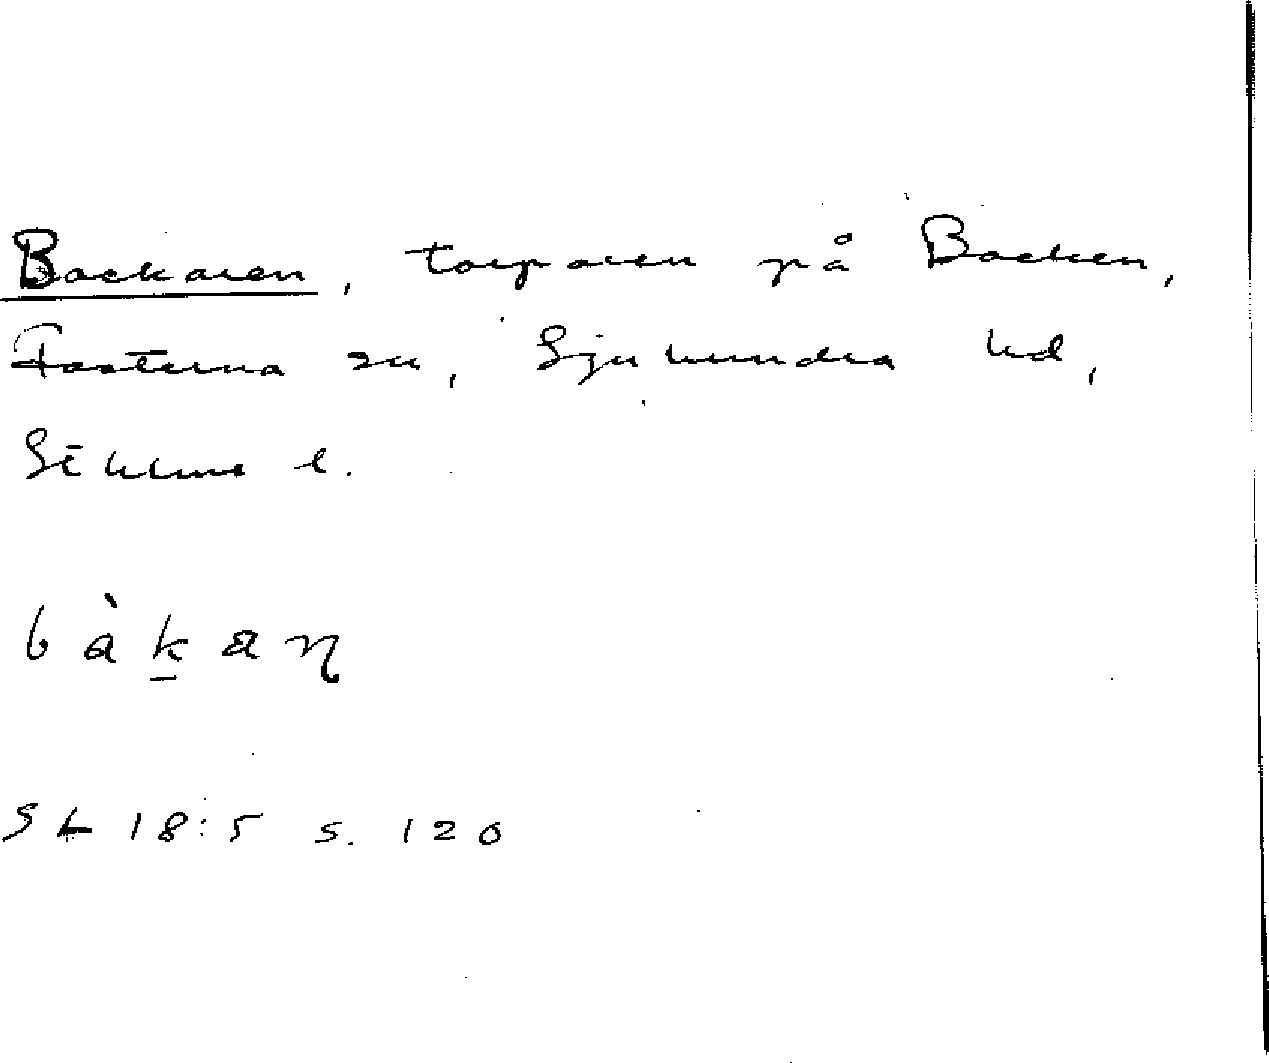 Backaren, torparen på Backen,
Fasterna sn, Sjuhundra hd,
Sthlms l.
bàk̠aɳ
SL 18:5 s. 120